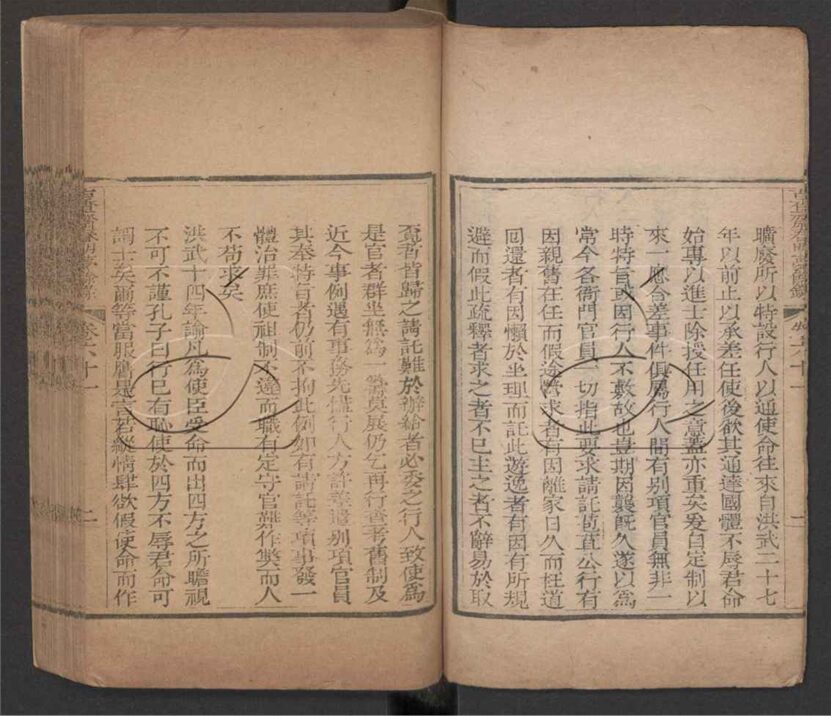 曠廢所以特設行人以通使命往來自洪武二十七
年以前止以承差任使後欲其通達國體不辱君命
始專以進士除授任用之意蓋亦重矣爰自定制以
來一應合差事件俱屬行人間有别項官員無非一
時特旨或因行人不敷故也豈期因襲旣久遂以爲
常今各衙門官員一切指此要求請託苞苴公行有
因親舊在任而假途營求者有因離家日久而枉道
回還者有因懶於坐理而託此遊逸者有因有所規
避而假此疏釋者求之者不已主之者不辭易於取
卷六十一
二
盃者皆歸之請託難於辦給者必委之行人致使爲
是官者群坐無爲一籌莫展仍乞再行查考舊制及
近今事例遇有事務先儘行人方許差遣别項官員
其奉特旨者仍前不拘此例如有請託等項事發一
體治罪庶使祖制不違而職有定守官難作獘而人
不苟求矣
洪武十四年諭凡爲使臣受命而出四方之所瞻視
不可不謹孔子曰行己有恥使於四方不辱君命可
謂士矣爾等當服膺是言若縱情肆欲假使命而作
卷六十一
二